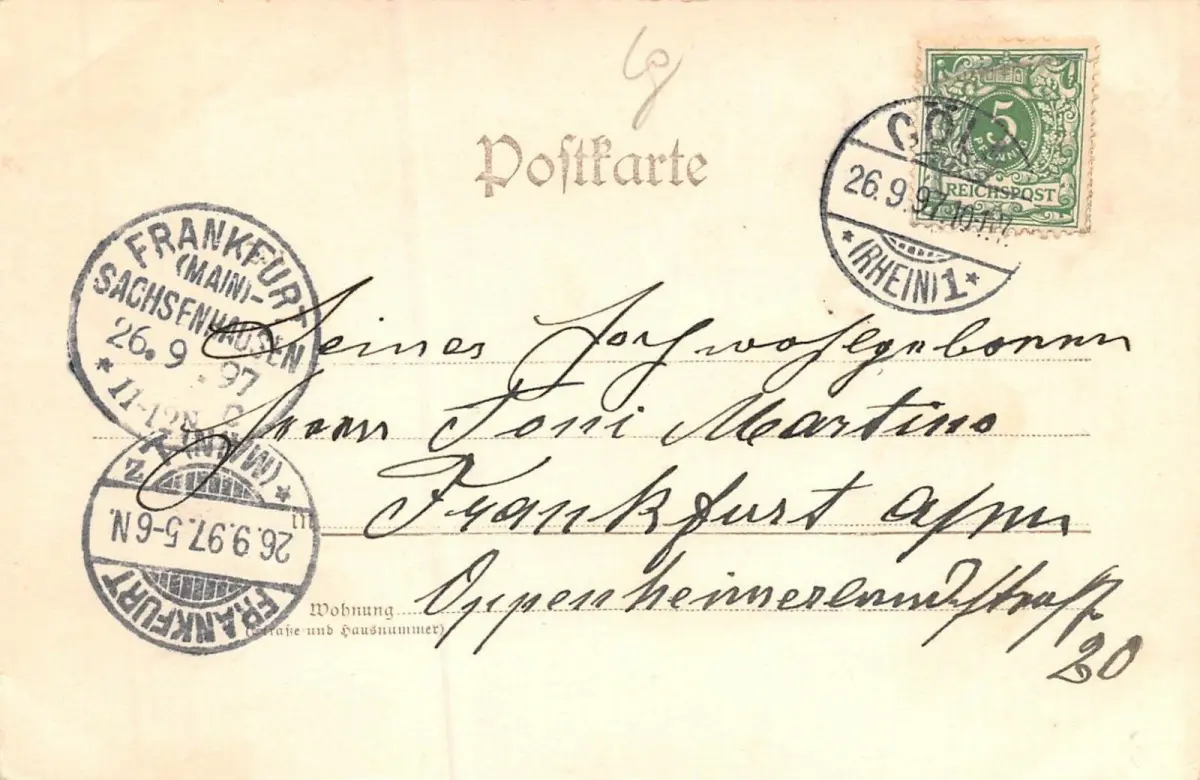 lg
Postkarte
CÖLN
5
PFENNIG
REICHSPOST
26.9.97.10-11V.
* (RHEIN) 1 *
FRANKFURT
(MAIN)-
SACHSENHAUSEN
26.9.97
* 11-12N
Seines Hochwohlgeboren
Herrn Toni Martino
in Frankfurt a/m
Wohnung Oppenheimerlandstraße
(Straße und Hausnummer)
20
FRANKFURT
26.9.97.5-6N.
* (MAIN) 1 z